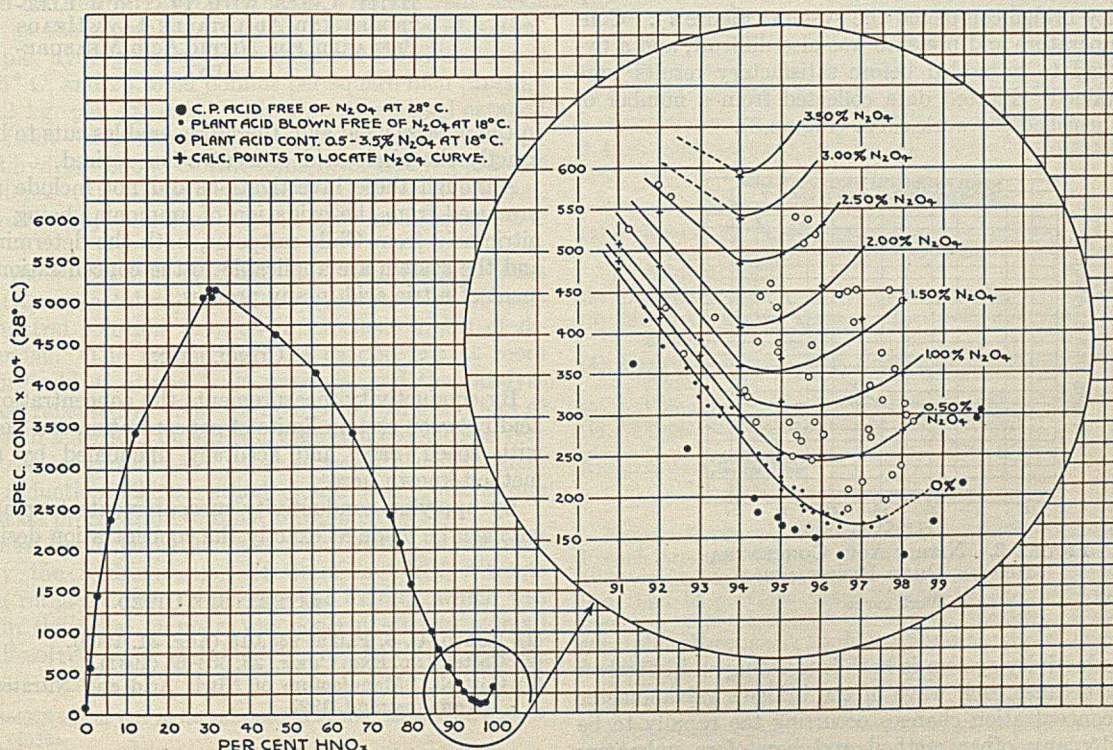 ● C.P. ACID FREE OF N₂O₄ AT 28° C.
• PLANT ACID BLOWN FREE OF N₂O₄ AT 18° C.
○ PLANT ACID CONT. 0.5-3.5% N₂O₄ AT 18° C.
+ CALC. POINTS TO LOCATE N₂O₄ CURVE.
SPEC. COND. × 10⁺⁴ (28° C.)
6000
5500
5000
4500
4000
3500
3000
2500
2000
1500
1000
500
0
0 10 20 30 40 50 60 70 80 90 100
PER CENT HNO₃
3.50% N₂O₄
3.00% N₂O₄
2.50% N₂O₄
2.00% N₂O₄
1.50% N₂O₄
1.00% N₂O₄
0.50%
N₂O₄
0%
600
550
500
450
400
350
300
250
200
150
91 92 93 94 95 96 97 98 99